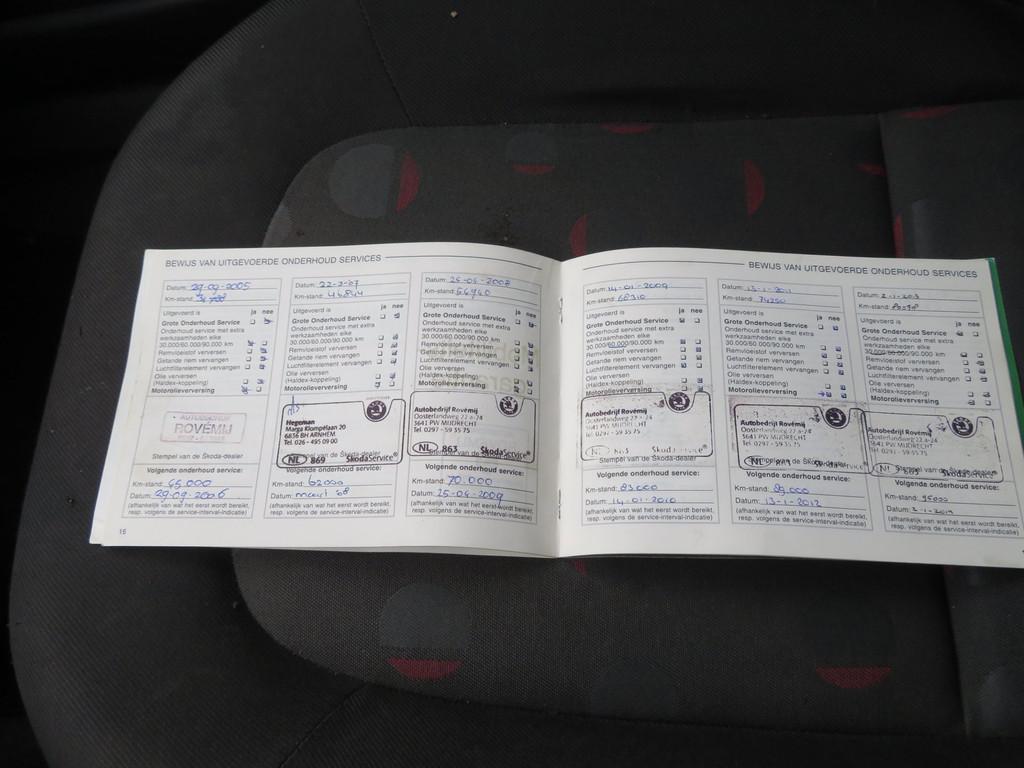 BEWIJS VAN UITGEVOERDE ONDERHOUD SERVICES
Datum: 29-09-2005
Km-stand:
Uitgevoerd is ja nee
Grote Onderhoud Service
Onderhoud service met extra
werkzaamheden elke
30.000/60.000/90.000 km
Remvloeistof verversen
Getande riem vervangen
Luchtfilterelement vervangen
Olie verversen
(Haldex-koppeling)
Motorolieverversing
AUTOBEDRIJF
ROVÉMIJ
Stempel van de Skoda-dealer
Volgende onderhoud service:
Km-stand: 65.000
Datum: 29-09-2006
(afhankelijk van wat het eerst wordt bereikt,
resp. volgens de service-interval-indicatie)
16
Datum: 22-3-07
Km-stand: 46844
Uitgevoerd is ja nee
Grote Onderhoud Service
Onderhoud service met extra
werkzaamheden elke
30.000/60.000/90.000 km
Remvloeistof verversen
Getande riem vervangen
Luchtfilterelement vervangen
Olie verversen
(Haldex-koppeling)
Motorolieverversing
Hegeman
Marga Klompélaan 20
6836 BH ARNHEM
Tel. 026 - 495 09 00
NL 869 SkodaService
Stempel van de Skoda-dealer
Volgende onderhoud service:
Km-stand: 62000
Datum: maart 08
(afhankelijk van wat het eerst wordt bereikt,
resp. volgens de service-interval-indicatie)
Datum: 25-06-2008
Km-stand: 56940
Uitgevoerd is ja nee
Grote Onderhoud Service
Onderhoud service met extra
werkzaamheden elke
30.000/60.000/90.000 km
Remvloeistof verversen
Getande riem vervangen
Luchtfilterelement vervangen
Olie verversen
(Haldex-koppeling)
Motorolieverversing
Autobedrijf Rovémij
Oosterlandweg 22 a-24
3641 PW MIJDRECHT
Tel. 0297 - 59 35 75
NL 863 SkodaService
Stempel van de Skoda-dealer
Volgende onderhoud service:
Km-stand: 70.000
Datum: 25-06-2009
(afhankelijk van wat het eerst wordt bereikt,
resp. volgens de service-interval-indicatie)
BEWIJS VAN UITGEVOERDE ONDERHOUD SERVICES
Datum: 14-01-2009
Km-stand: 68310
Uitgevoerd is ja nee
Grote Onderhoud Service
Onderhoud service met extra
werkzaamheden elke
30.000/60.000/90.000 km
Remvloeistof verversen
Getande riem vervangen
Luchtfilterelement vervangen
Olie verversen
(Haldex-koppeling)
Motorolieverversing
Autobedrijf Rovémij
Oosterlandweg 22 a-24
3641 PW MIJDRECHT
Tel. 0297 - 59 35 75
Stempel van de Skoda-dealer
Volgende onderhoud service:
Km-stand: 83000
Datum: 14-01-2010
(afhankelijk van wat het eerst wordt bereikt,
resp. volgens de service-interval-indicatie)
Datum: 13-1-2011
Km-stand: 74250
Uitgevoerd is ja nee
Grote Onderhoud Service
Onderhoud service met extra
werkzaamheden elke
30.000/60.000/90.000 km
Remvloeistof verversen
Getande riem vervangen
Luchtfilterelement vervangen
Olie verversen
(Haldex-koppeling)
Motorolieverversing
Autobedrijf Rovémij
Oosterlandweg 22 a-24
3641 PW MIJDRECHT
Tel. 0297 - 59 35 75
NL SkodaService
Stempel van de Skoda-dealer
Volgende onderhoud service:
Km-stand: 89.000
Datum: 13-1-2012
(afhankelijk van wat het eerst wordt bereikt,
resp. volgens de service-interval-indicatie)
Datum: 2-1-2013
Km-stand:
Uitgevoerd is ja nee
Grote Onderhoud Service
Onderhoud service met extra
werkzaamheden elke
30.000/60.000/90.000 km
Remvloeistof verversen
Getande riem vervangen
Luchtfilterelement vervangen
Olie verversen
(Haldex-koppeling)
Motorolieverversing
Autobedrijf Rovémij
Oosterlandweg 22 a-24
3641 PW MIJDRECHT
Tel. 0297 - 59 35 75
NL 863 SkodaService
Stempel van de Skoda-dealer
Volgende onderhoud service:
Km-stand: 95000
Datum: 2-1-2014
(afhankelijk van wat het eerst wordt bereikt,
resp. volgens de service-interval-indicatie)